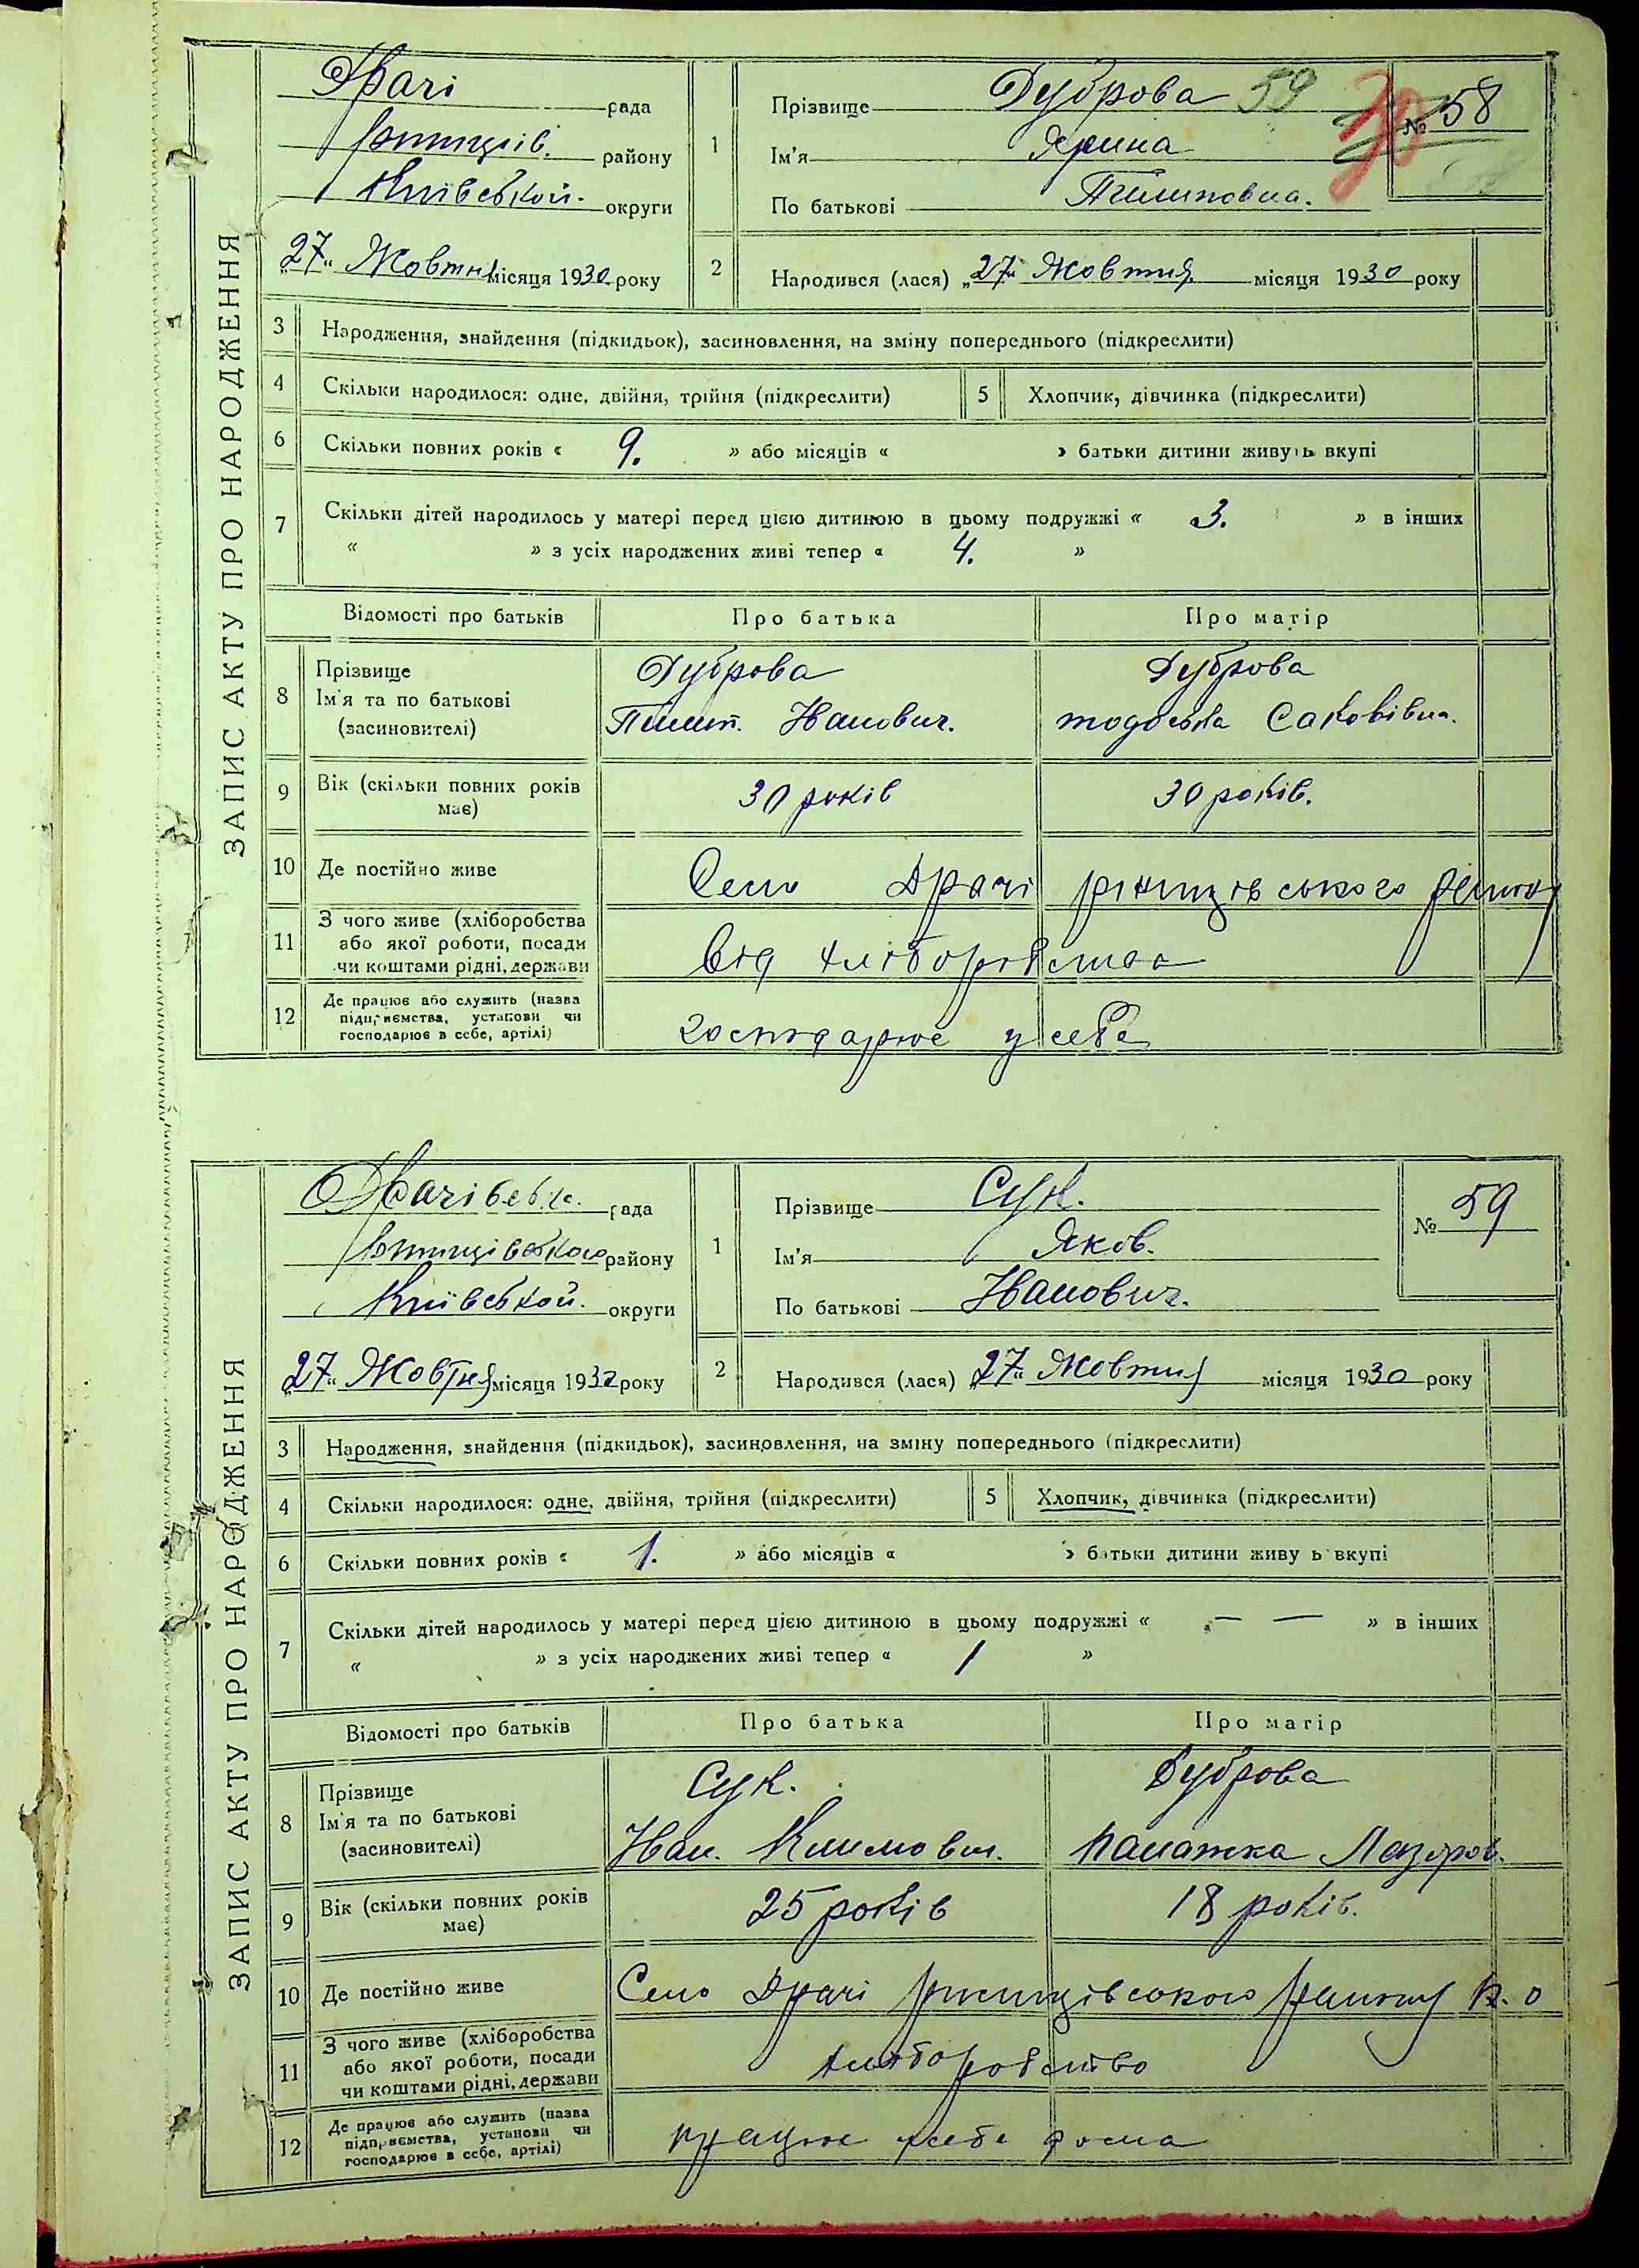 ЗАПИС АКТУ ПРО НАРОДЖЕННЯ
Драчі рада
району
Київськой. округи
„27“ Жовтня місяця 1930 року
1
Прізвище Дуброва 59
Ім'я Ярина
По батькові Пилиповна.
30
№ 58
2
Народився (лася) „27“ Жовтня місяця 1930 року
3 Народження, знайдення (підкидьок), засиновлення, на зміну попереднього (підкреслити)
4 Скільки народилося: одне, двійня, трійня (підкреслити)
5 Хлопчик, дівчинка (підкреслити)
6 Скільки повних років « 9. » або місяців « » батьки дитини живуть вкупі
7 Скільки дітей народилось у матері перед цією дитиною в цьому подружжі « 3. » в інших
« » з усіх народжених живі тепер « 4. »
Відомості про батьків Про батька Про матір
8 Прізвище
Ім'я та по батькові
(засиновителі)
Дуброва
Пилип. Иванович.
Дуброва
тодоська Саковівна.
9 Вік (скільки повних років
має)
30 років 30 років.
10 Де постійно живе Село Драчі
11 З чого живе (хліборобства
або якої роботи, посади
чи коштами рідні, держави
Від хліборобства
12 Де працює або служить (назва
підприємства, установи чи
господарює в себе, артілі)
господарює у себе
ЗАПИС АКТУ ПРО НАРОДЖЕННЯ
Драчівська. рада
району
Київськой. округи
„27“ Жовтня місяця 1930 року
1
Прізвище Сук.
Ім'я Яков.
По батькові Иванович.
№ 59
2
Народився (лася) „27“ Жовтня місяця 1930 року
3 Народження, знайдення (підкидьок), засиновлення, на зміну попереднього (підкреслити)
4 Скільки народилося: одне, двійня, трійня (підкреслити)
5 Хлопчик, дівчинка (підкреслити)
6 Скільки повних років « 1. » або місяців « » батьки дитини живуть вкупі
7 Скільки дітей народилось у матері перед цією дитиною в цьому подружжі « — — » в інших
« » з усіх народжених живі тепер « 1 »
Відомості про батьків Про батька Про матір
8 Прізвище
Ім'я та по батькові
(засиновителі)
Сук.
Иван. Климович.
Дуброва
Палажка Лазоров.
9 Вік (скільки повних років
має)
25 років 18 років.
10 Де постійно живе Село Драчі району К. о
11 З чого живе (хліборобства
або якої роботи, посади
чи коштами рідні, держави
хліборобство
12 Де працює або служить (назва
підприємства, установи чи
господарює в себе, артілі)
працює у себе дома